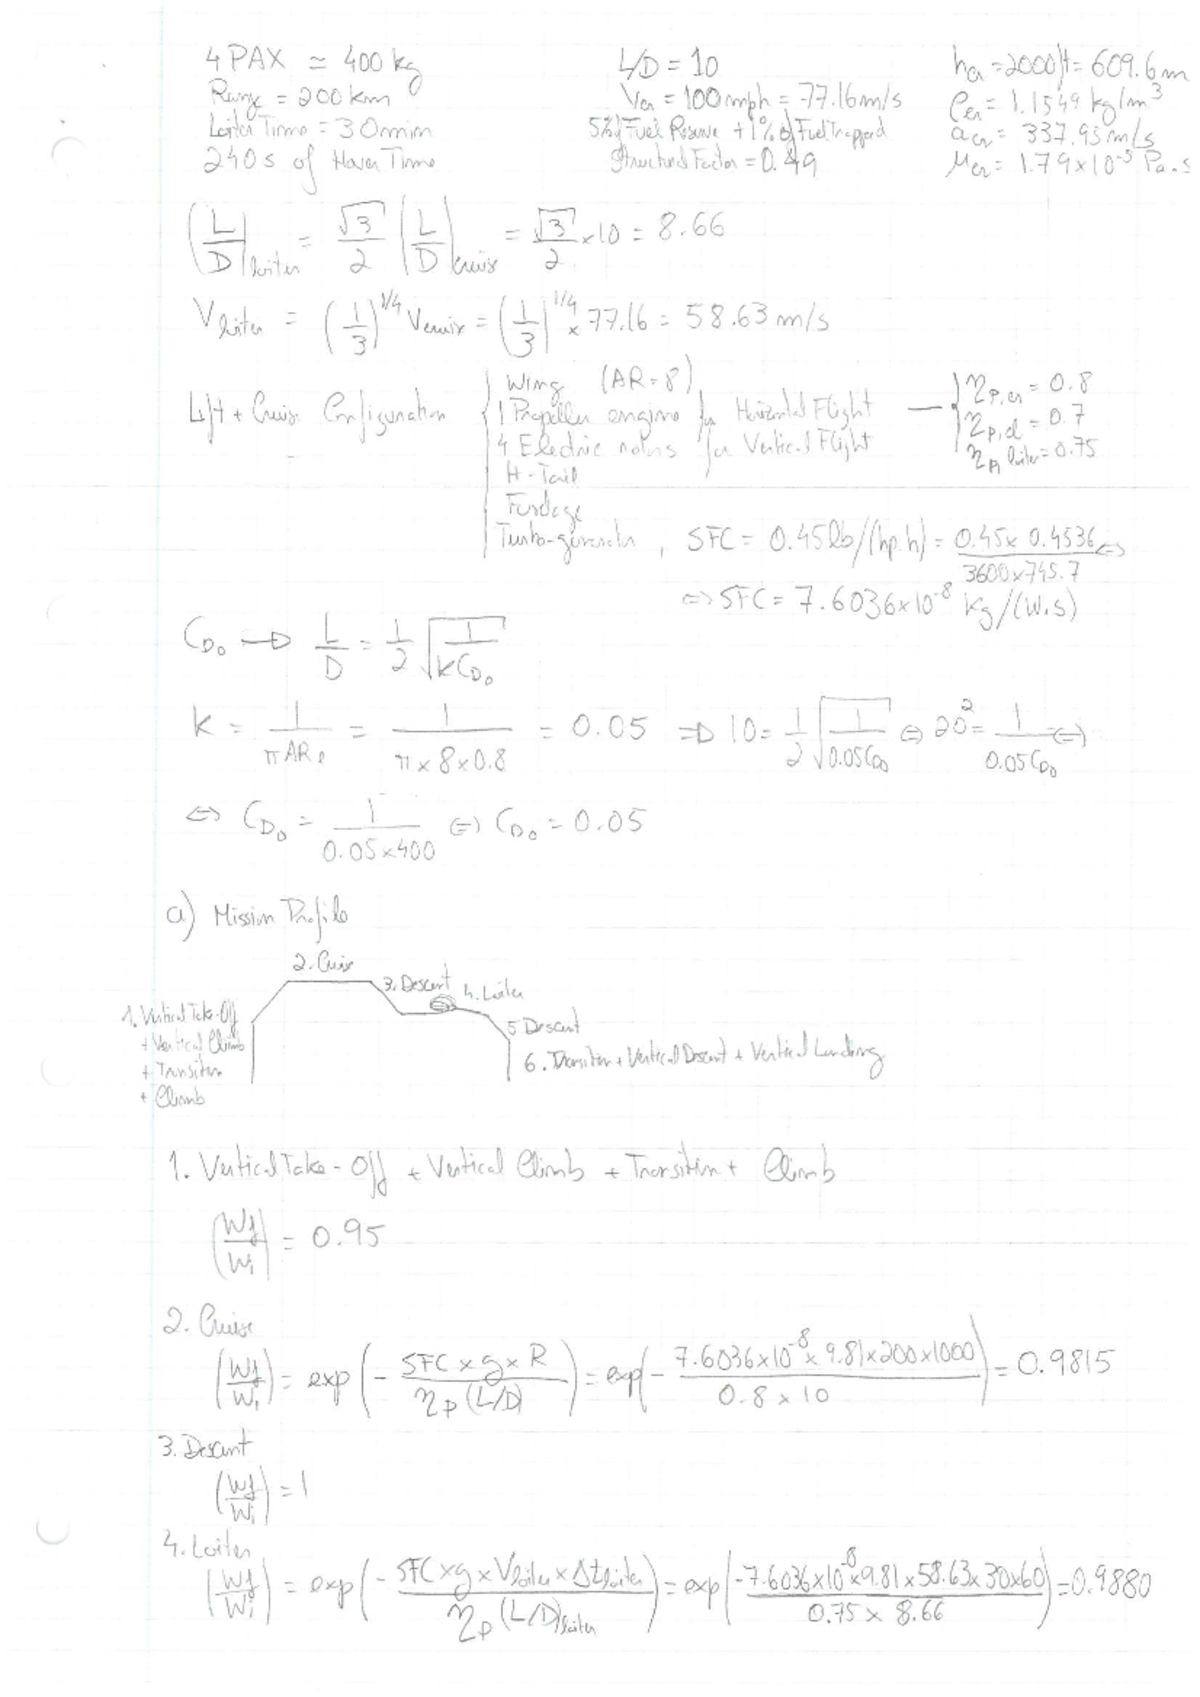 4 PAX ≃ 400 kg
Range = 200 km
Loiter Time = 30 min
240 s of Hover Time
L/D = 10
Vcr = 100 mph = 77.16 m/s
5% of Fuel Reserve + 1% of Fuel Trapped
Structural Factor = 0.49
hcr = 2000 ft = 609.6 m
ρcr = 1.1549 kg/m³
acr = 337.95 m/s
μcr = 1.79×10⁻⁵ Pa.s
(L/D)loiter = √3/2 (L/D)cruise = √3/2 × 10 = 8.66
Vloiter = (1/3)^1/4 Vcruise = (1/3)^1/4 × 77.16 = 58.63 m/s
Lift + Cruise Configuration
Wing (AR = 8)
1 Propeller engine for Horizontal Flight
4 Electric rotors for Vertical Flight
H-Tail
Fuselage
Turbo-generator, SFC = 0.45 lb/(hp.h) = (0.45 × 0.4536)/(3600×745.7) ⇔
ηp,cr = 0.8
ηp,cl = 0.7
ηp, loiter = 0.75
⇔ SFC = 7.6036×10⁻⁸ kg/(W.s)
CD₀ → L/D = 1/2 √(1/(kCD₀))
K = 1/(πARe) = 1/(π×8×0.8) = 0.05 ⇒ 10 = 1/2 √(1/(0.05CD₀)) ⇔ 20² = 1/(0.05CD₀) ⇔
⇔ CD₀ = 1/(0.05×400) ⇔ CD₀ = 0.05
a) Mission Profile
2. Cruise
3. Descent
4. Loiter
1. Vertical Take-Off
+ Vertical Climb
+ Transition
+ Climb
5 Descent
6. Transition + Vertical Descent + Vertical Landing
1. Vertical Take-Off + Vertical Climb + Transition + Climb
(Wf/Wi) = 0.95
2. Cruise
(Wf/Wi) = exp(- (SFC × g × R)/(ηp (L/D))) = exp(- (7.6036×10⁻⁸ × 9.81×200×1000)/(0.8 × 10)) = 0.9815
3. Descent
(Wf/Wi) = 1
4. Loiter
(Wf/Wi) = exp(- (SFC×g×Vloiter×Δtloiter)/(ηp (L/D)loiter)) = exp(-(7.6036×10⁻⁸×9.81×58.63×30×60)/(0.75 × 8.66)) = 0.9880